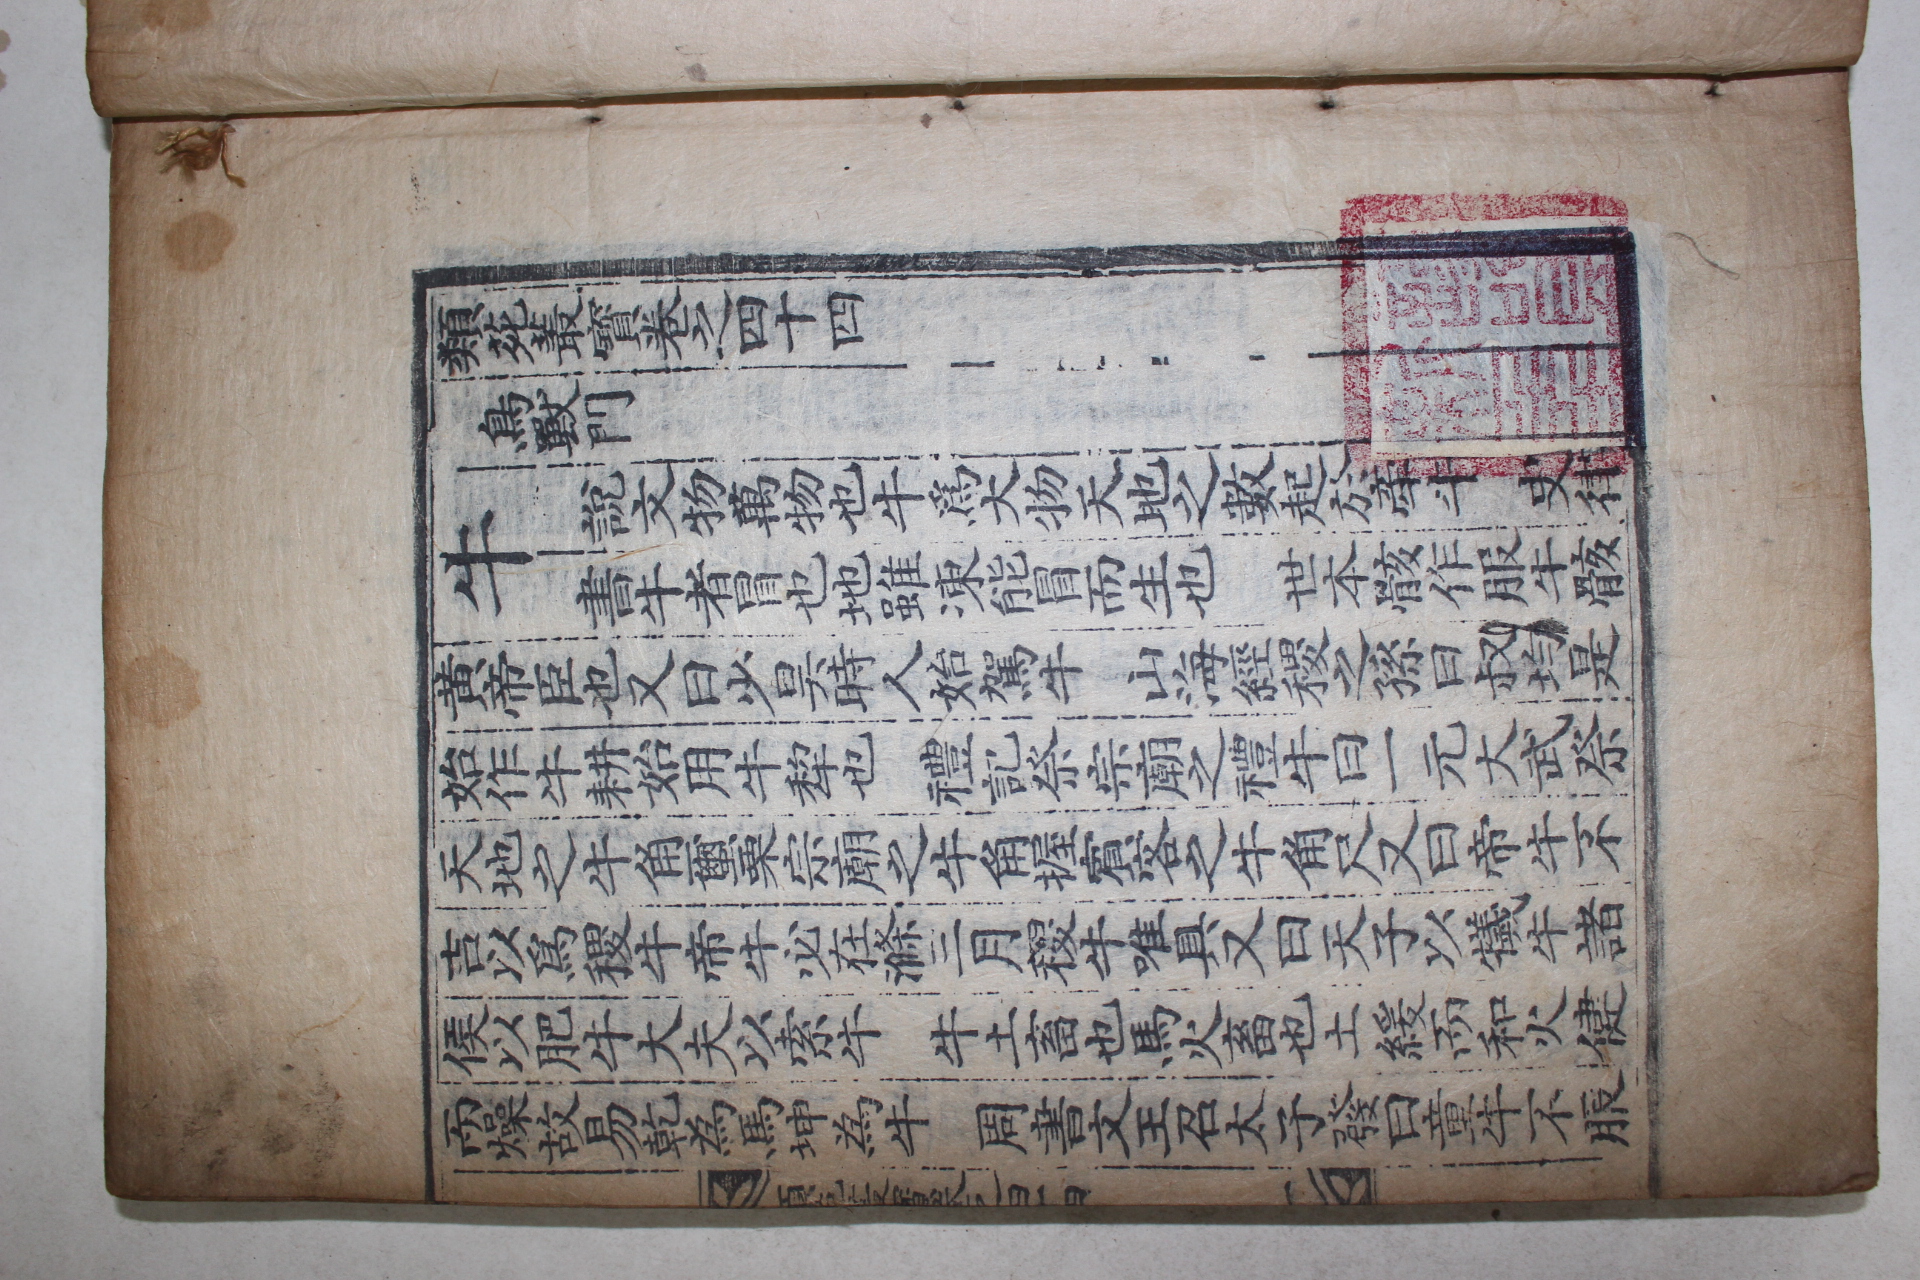 類苑叢寶卷之四十四
鳥獸門
牛
說文物萬物也牛爲大物天地之數起於牽牛 史律
書牛者冒也地雖凍能冒而生也 世本骸作服牛骸
黃帝臣也又曰少昊時人始駕牛 山海經稷之孫曰叔均是
始作牛耕始用牛犂也 禮記祭宗廟之禮牛曰一元大武祭
天地之牛角繭栗宗廟之牛角握賓客之牛角尺又曰帝牛不
吉以爲稷牛帝牛必在滌三月稷牛唯具又曰天子以犧牛諸
侯以肥牛大夫以索牛 牛土畜也馬火畜也土緩而和火健
而燥故易乾爲馬坤爲牛 周書文王召太子發曰童牛不服